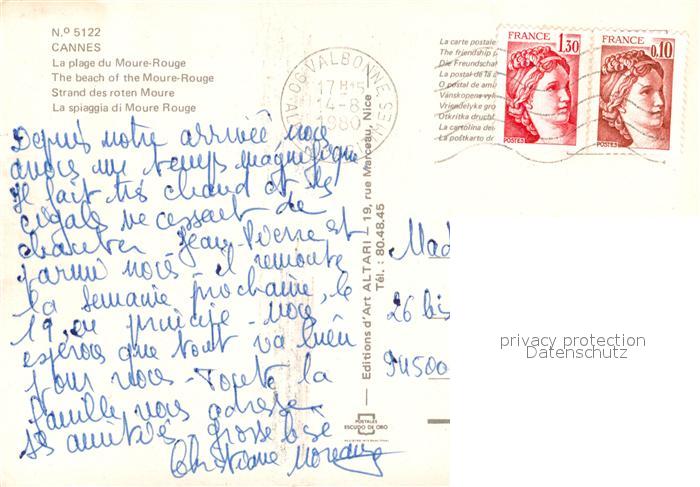 N.º 5122
CANNES
La plage du Moure-Rouge
The beach of the Moure-Rouge
Strand des roten Moure
La spiaggia di Moure Rouge
Depuis notre arrivée nous
avons un temps magnifique
Il fait très chaud et les
cigales ne cessent de
chanter Jean-Pierre est
parmi nous il remonte
la semaine prochaine, le
19, en principe - nous
espérons que tout va bien
pour vous - Toute la
famille vous adresse
ses amitiés, grosse bise
Christiane
06 VALBONNE
17 H
14-8
1980
ALPES MMES
— Editions d'Art ALTARI – 19, rue Marceau, Nice —
Tél. : 80.48.45
POSTALES
ESCUDO DE ORO
La carte postale
The friendship p
Die Freundschaf
La postal de la a
O postal de am
Vänskapens vyk
Vriendelijke gro
Otkritka druzh
La cartolina del
La postkarto d
FRANCE
1,30
POSTES
FRANCE
0,10
POSTES
Mad
26 bis
94500
privacy protection
Datenschutz